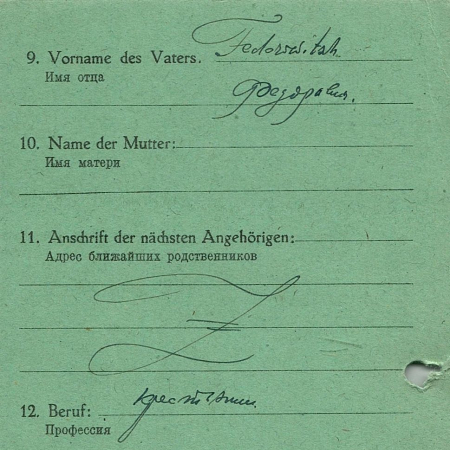 9. Vorname des Vaters. Fedorowitsh
Имя отца
Федоравич.
10. Name der Mutter:
Имя матери
11. Anschrift der nächsten Angehörigen:
Адрес ближайших родственников
12. Beruf: крестянин.
Профессия